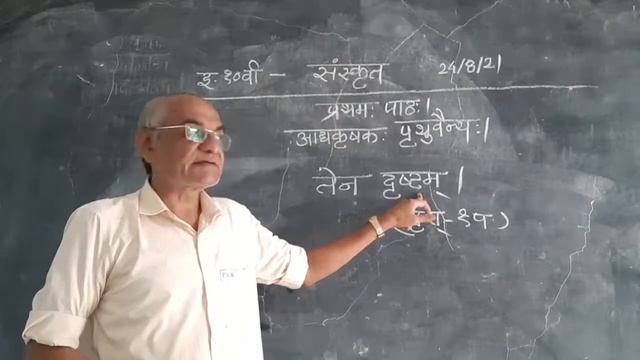 इ. १०वी - संस्कृत 24/8/21
प्रथमः पाठः।
आद्यकृषकः पृथुवैन्यः।
तेन दृष्टम्।